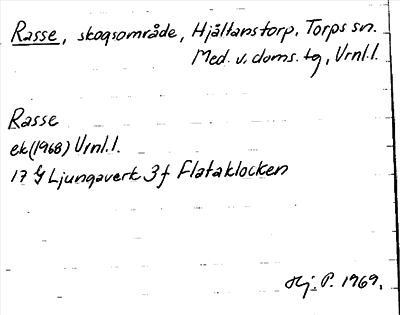 Rasse, skogsområde, Hjältanstorp, Torps sn.
Med. v. doms. tg, Vrnl.l.
Rasse
ek (1968) Vrnl.l.
17 G Ljungaverk 3f Flataklocken
Hj. P. 1969.